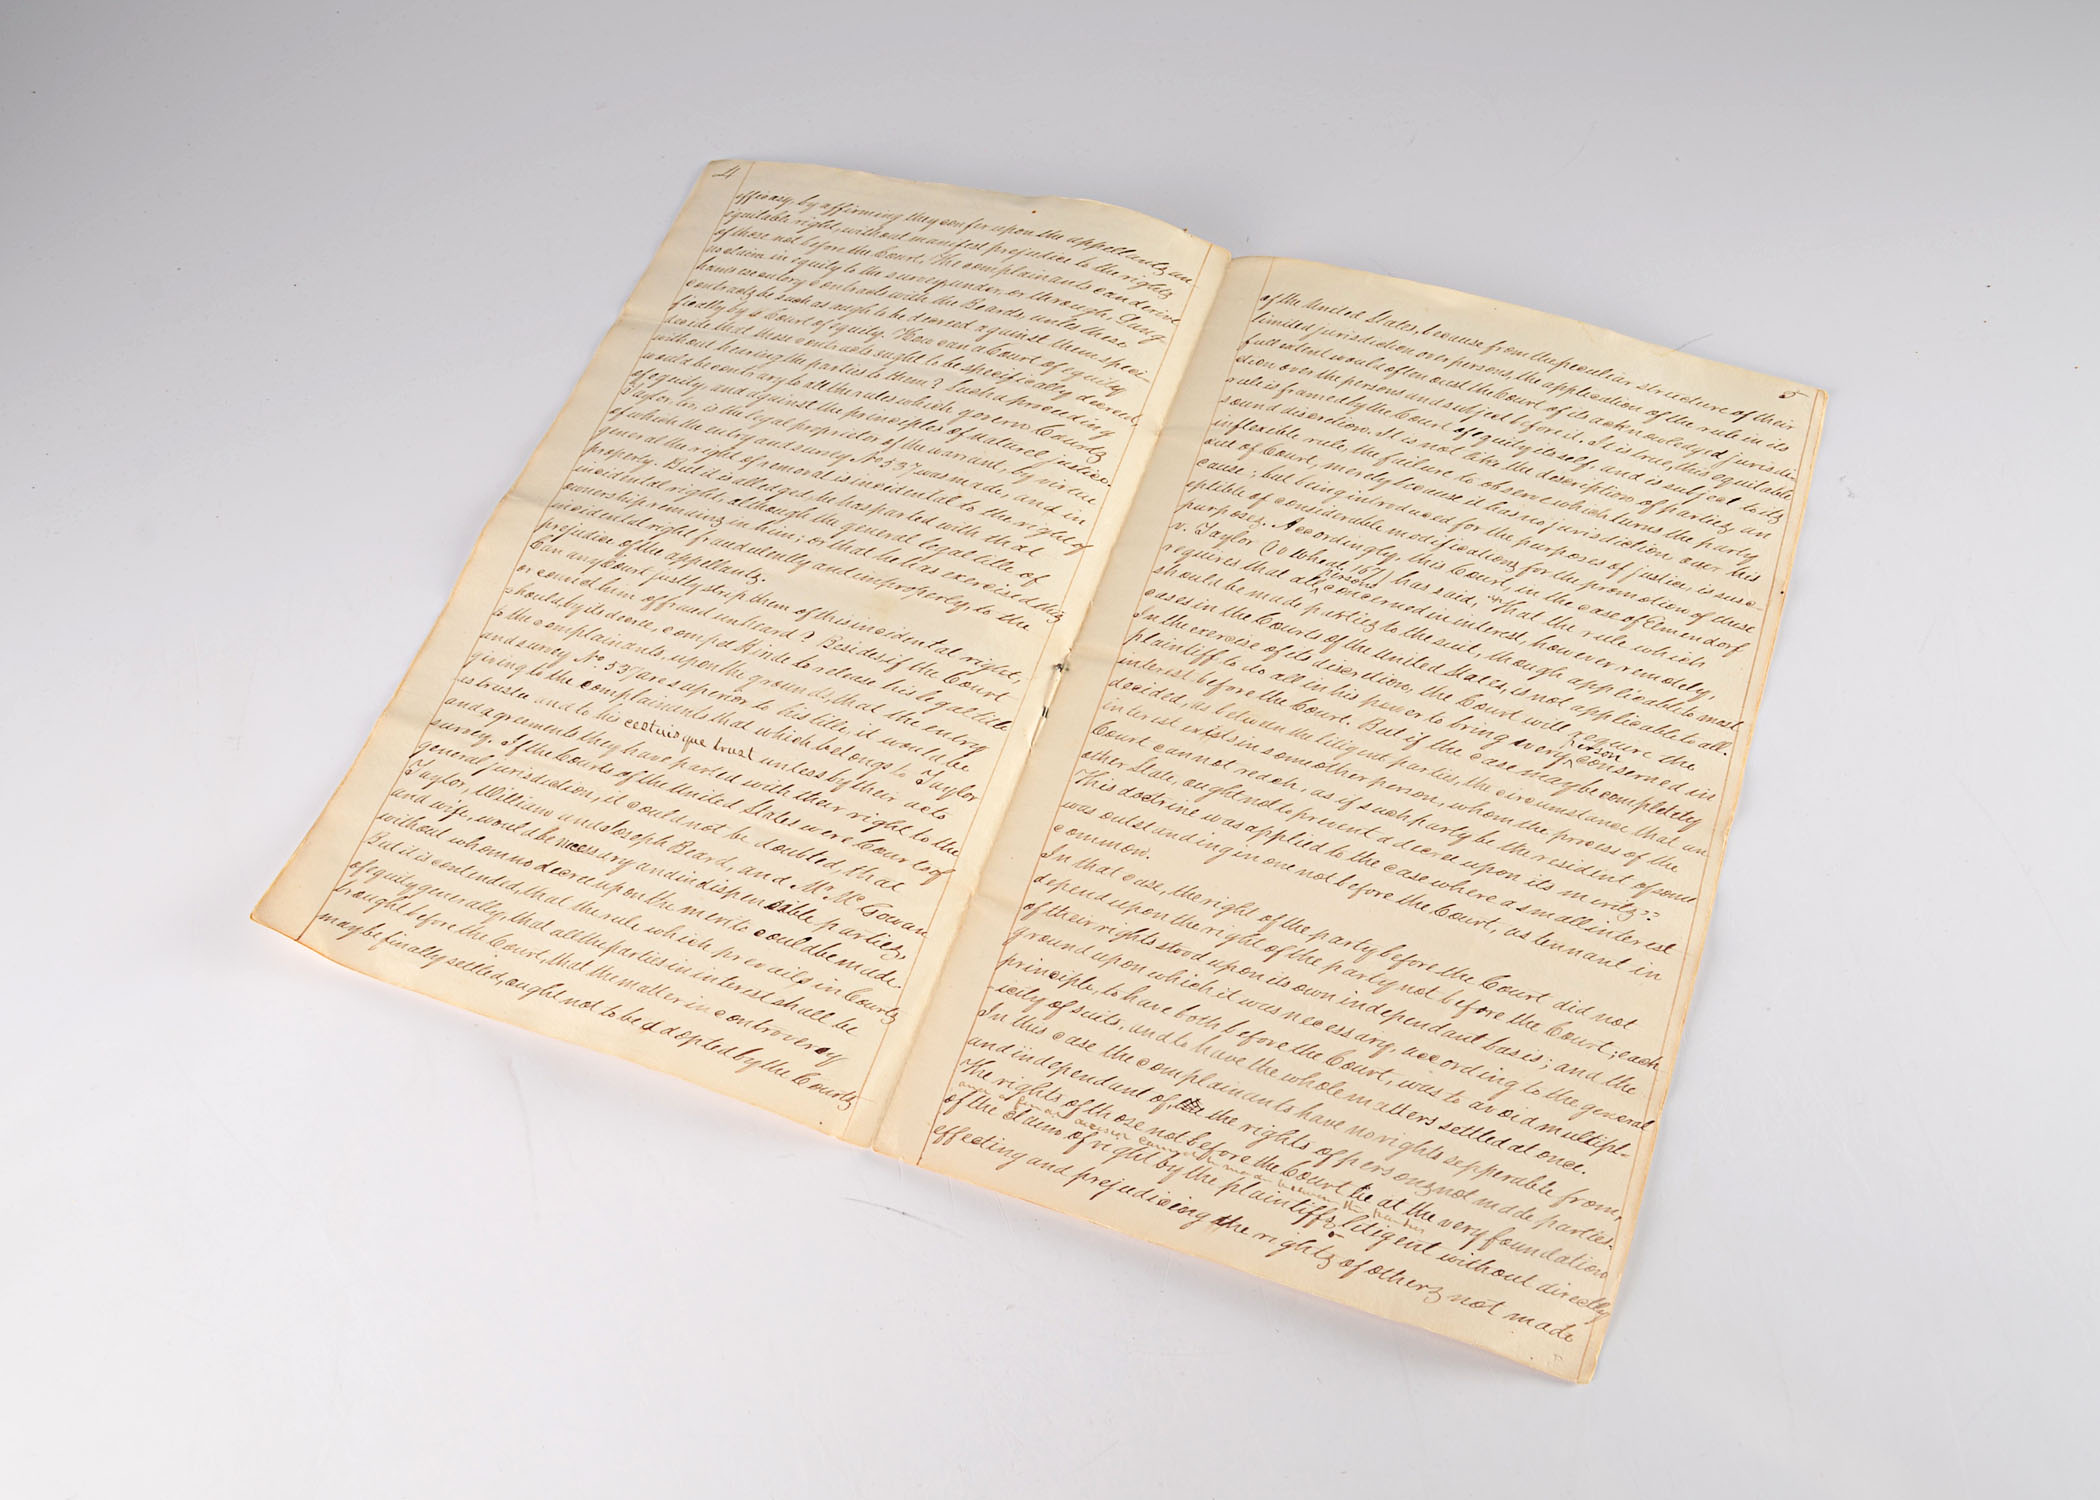 4
efficacy, by affirming they confer upon the appellants an
equitable right, without manifest prejudice to the rights
of those not before the Court. The complainants can derive
no claim in equity to the survey, under, or through, Lang-
hams executory contracts with the Beards, unless these
contracts be such as ought to be decreed against them speci-
fically by a Court of equity. How can a Court of equity
decide that these contracts ought to be specifically decreed,
without hearing the parties to them? Such a proceeding
would be contrary to all the rules which govern Courts
of equity, and against the principles of natural justice.
Taylor, Sr, is the legal proprietor of the warrant, by virtue
of which the entry and survey No 537 was made, and in
general the right of removal is incidental to the right of
property. But it is alledged, he has parted with that
incidental right, although the general legal title of
ownership remains in him; or that he has exercised this
incidental right fraudulently and improperly, to the
prejudice of the appellants.
Can any Court justly strip them of this incidental right,
or convict him of fraud unheard? Besides if the Court
should, by its decree, compel Hinde to release his legal title
to the complainants, upon the grounds, that the entry
and survey No. 537 are superior to his title, it would be
giving to the complainants that which belongs to Taylor
as trustee and to his cestuis que trust unless by their acts
and agreements they have parted with their right to the
survey. If the Courts of the United States were Courts of
general jurisdiction, it could not be doubted, that
Taylor, William and Joseph Beard, and Mr. McGowan
and wife, would be necessary and indispensible parties,
without whom no decree upon the merits could be made.
But it is contended, that the rule which prevails in Courts
of equity generally, that all the parties in interest shall be
brought before the Court, that the matter in controversy
may be finally settled, ought not to be adopted by the Courts
5
of the United States, because from the peculiar structure of their
limited jurisdiction over persons, the application of the rule in its
full extent would often oust the Court of its acknowledged jurisdic-
tion over the persons and subject before it. It is true, this equitable
rule is framed by the Court of equity itself, and is subject to its
sound discretion. It is not like the description of parties, an
inflexible rule, the failure to observe which turns the party
out of Court, merely because it has no jurisdiction over his
cause; but being introduced for the purposes of justice, is susc-
eptible of considerable modifications for the promotion of these
purposes. Accordingly, this Court, in the case of Elmendorf
v. Taylor (10 Wheat, 167) has said, "That the rule which
requires that all persons concerned in interest, however remotely,
should be made parties to the suit, though applicable to most
cases in the Courts of the United States, is not applicable to all.
In the exercise of its discretion, the Court will require the
plaintiff to do all in his power to bring every person conserned in
interest before the Court. But if the case may be completely
decided, as between the litigent parties, the circumstance that an
interest exists in some other person, whom the process of the
Court cannot reach, as if such party be the resident of some
other State, ought not to prevent a decree upon its merits".
This doctrine was applied to the case where a small interest
was outstanding in one not before the Court, as tennant in
common.
In that case, the right of the party before the Court did not
depend upon the right of the party not before the Court; each
of their rights stood upon its own independant basis; and the
ground upon which it was necessary, according to the general
principle, to have both before the Court, was to avoid multipl-
icity of suits, and to have the whole matters settled at once.
In this case the complainants have no rights sepperable from,
and independant of, the rights of persons not made parties.
The rights of those not before the Court lie at the very foundation
of the claim of right by the plaintiffs, litigent without directly
effecting and prejudicing the rights of others not made